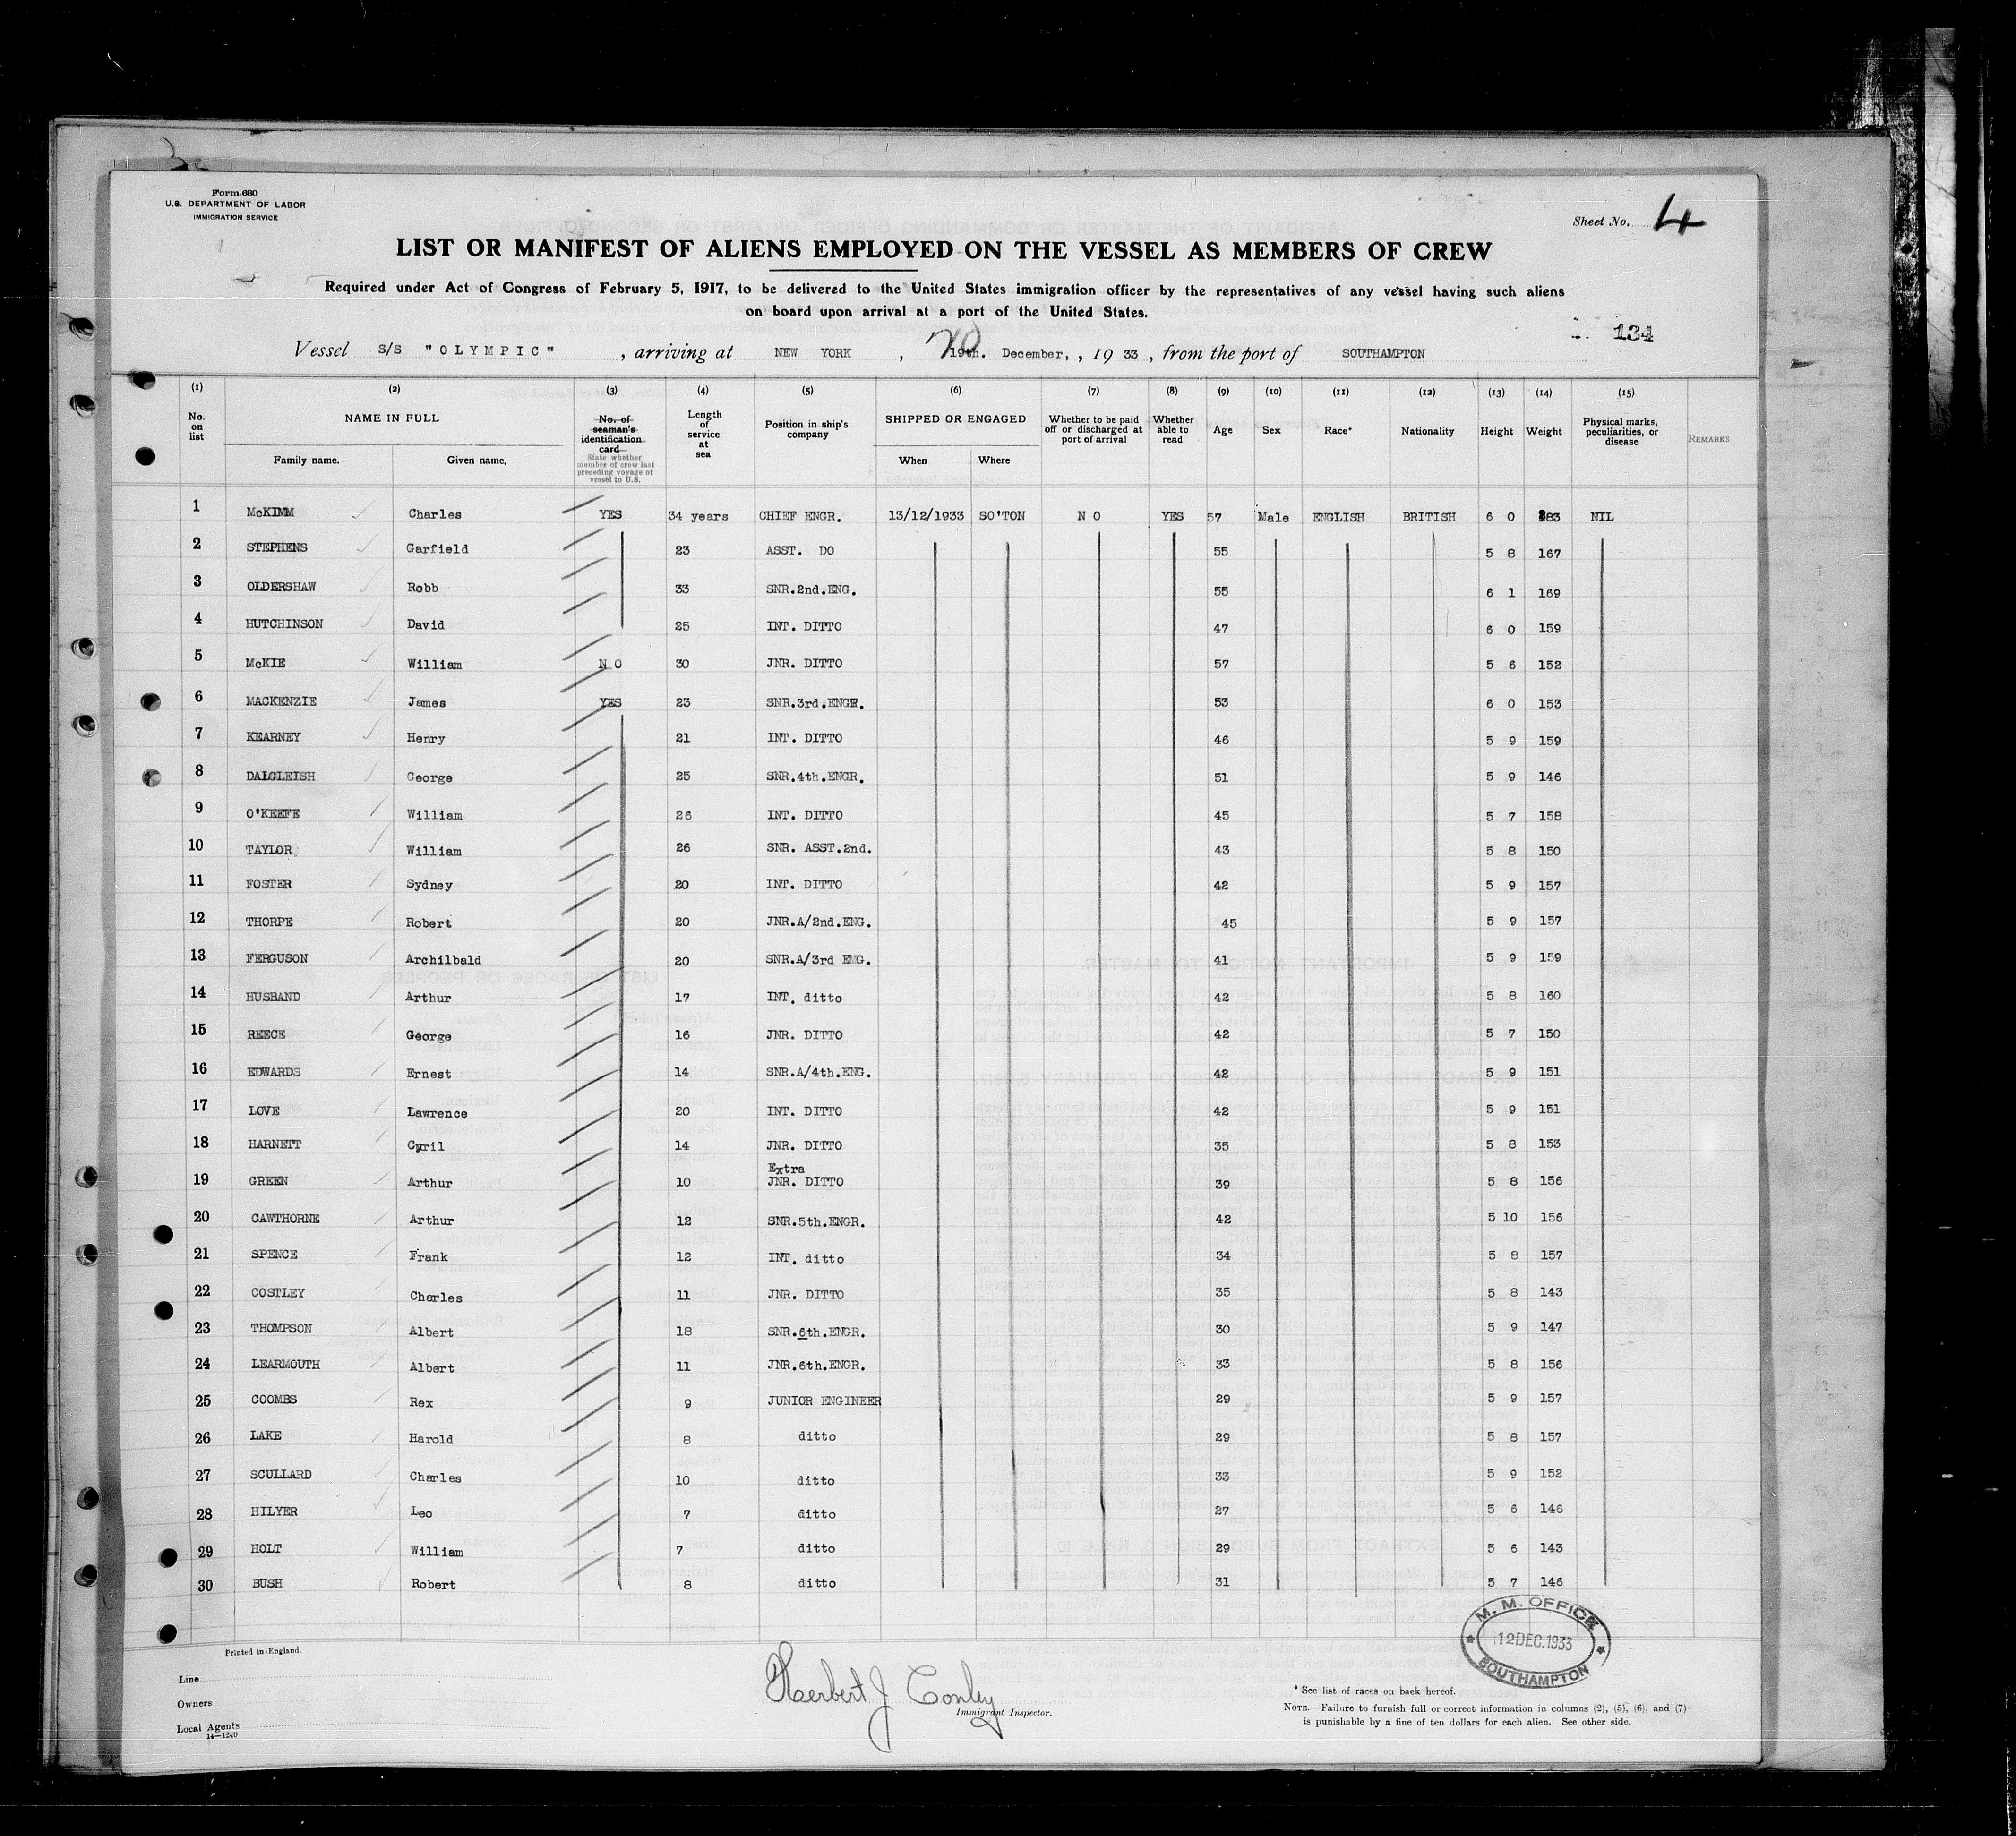 Form 680
U.S. DEPARTMENT OF LABOR
IMMIGRATION SERVICE
Sheet No. 4
LIST OR MANIFEST OF ALIENS EMPLOYED ON THE VESSEL AS MEMBERS OF CREW
Required under Act of Congress of February 5, 1917, to be delivered to the United States immigration officer by the representatives of any vessel having such aliens
on board upon arrival at a port of the United States.
134
20
Vessel S/S "OLYMPIC", arriving at NEW YORK, 19th. December, , 1933, from the port of SOUTHAMPTON
(1) (2) (3) (4) (5) (6) (7) (8) (9) (10) (11) (12) (13) (14) (15)
No. on list
NAME IN FULL
Family name. Given name.
No. of seaman's identification card
State whether member of crew last preceding voyage of vessel to U.S.
Length of service at sea
Position in ship's company
SHIPPED OR ENGAGED
When Where
Whether to be paid off or discharged at port of arrival
Whether able to read
Age Sex Race* Nationality Height Weight
Physical marks, peculiarities, or disease
REMARKS
1 McKIMM Charles YES 34 years CHIEF ENGR. 13/12/1933 SO'TON N O YES 57 Male ENGLISH BRITISH 6 0 183 NIL
2 STEPHENS Garfield 23 ASST. DO 55 5 8 167
3 OLDERSHAW Robb 33 SNR.2nd.ENG. 55 6 1 169
4 HUTCHINSON David 25 INT. DITTO 47 6 0 159
5 McKIE William N O 30 JNR. DITTO 57 5 6 152
6 MACKENZIE James YES 23 SNR.3rd.ENGR. 53 6 0 153
7 KEARNEY Henry 21 INT. DITTO 46 5 9 159
8 DALGLEISH George 25 SNR.4th.ENGR. 51 5 9 146
9 O'KEEFE William 26 INT. DITTO 45 5 7 158
10 TAYLOR William 26 SNR. ASST.2nd. 43 5 8 150
11 FOSTER Sydney 20 INT. DITTO 42 5 9 157
12 THORPE Robert 20 JNR.A/2nd.ENG. 45 5 9 157
13 FERGUSON Archilbald 20 SNR.A/3rd EMG. 41 5 9 159
14 HUSBAND Arthur 17 INT. ditto 42 5 8 160
15 REECE George 16 JNR. DITTO 42 5 7 150
16 EDWARDS Ernest 14 SNR.A/4th.ENG. 42 5 9 151
17 LOVE Lawrence 20 INT. DITTO 42 5 9 151
18 HARNETT Cyril 14 JNR. DITTO 35 5 8 153
Extra
19 GREEN Arthur 10 JNR. DITTO 39 5 8 156
20 CAWTHORNE Arthur 12 SNR.5th.ENGR. 42 5 10 156
21 SPENCE Frank 12 INT. ditto 34 5 8 157
22 COSTLEY Charles 11 JNR. DITTO 35 5 8 143
23 THOMPSON Albert 18 SNR.6th.ENGR. 30 5 9 147
24 LEARMOUTH Albert 11 JNR.6th.ENGR. 33 5 8 156
25 COOMBS Rex 9 JUNIOR ENGINEER 29 5 9 157
26 LAKE Harold 8 ditto 29 5 8 157
27 SCULLARD Charles 10 ditto 33 5 9 152
28 HILYER Leo 7 ditto 27 5 6 146
29 HOLT William 7 ditto 29 5 6 143
30 BUSH Robert 8 ditto 31 5 7 146
M. M. OFFICE
12 DEC. 1933
SOUTHAMPTON
Printed in England.
Line
Owners
Local Agents
14—1240
Herbert J Conley
Immigrant Inspector.
* See list of races on back hereof.
NOTE.—Failure to furnish full or correct information in columns (2), (5), (6), and (7)
is punishable by a fine of ten dollars for each alien. See other side.